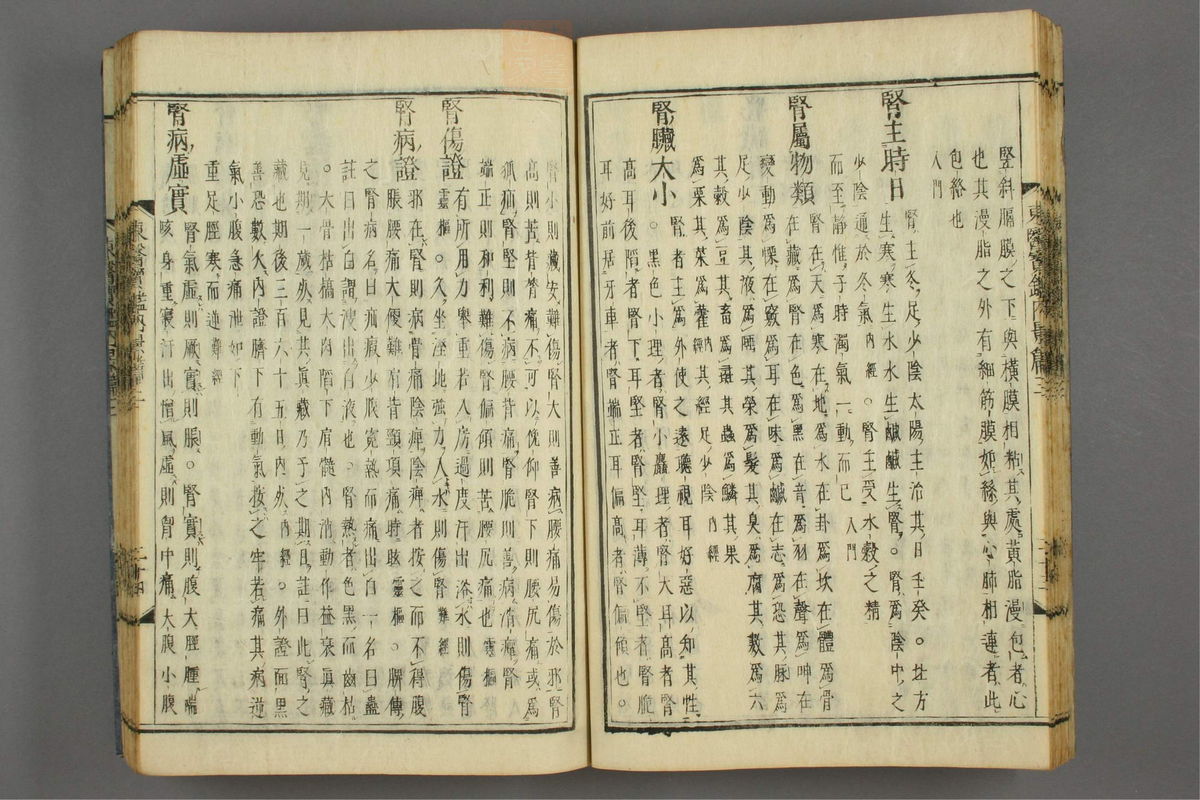 竪斜膈膜之下與橫膜相粘其處黃脂漫包者心
也其漫脂之外有細筋膜如絲與心肺相連者此
包絡也
入門
腎主時日
腎主冬足少陰太陽主治其日壬癸。北方
生寒寒生水水生鹹鹹生腎。腎爲陰中之
少陰通於冬氣內經。腎主受水穀之精
而至靜惟子時濁氣一動而已入門
腎屬物類
腎在天爲寒在地爲水在卦爲坎在體爲骨
在藏爲腎在色爲黑在音爲羽在聲爲呻在
變動爲慄在竅爲耳在味爲鹹在志爲恐其脉爲
足少陰其液爲唾其榮爲髮其臭爲腐其數爲六
其穀爲豆其畜爲彘其蟲爲鱗其果
爲栗其菜爲藿內經其經足少陰內經
腎臟大小
腎者主爲外使之遠聽視耳好惡以知其性
。黑色小理者腎小麤理者腎大耳高者腎
高耳後陷者腎下耳堅者腎堅耳薄不堅者腎脆
耳好前居牙車者腎端正耳偏高者腎偏傾也。
腎小則藏安難傷腎大則善病腰痛易傷於邪腎
高則苦背膂痛不可以俛仰腎下則腰尻痛或爲
狐疝腎堅則不病腰背痛腎脆則善病消癉腎
端正則和利難傷腎偏傾則苦腰尻痛也靈樞
腎傷證
有所用力擧重若入房過度汗出浴水則傷腎
靈樞。久坐濕地強力入水則傷腎難經
腎病證
邪在腎則病骨痛陰痺陰痺者按之而不得腹
脹腰痛大便難肩背頸項痛時眩靈樞。脾傳
之腎病名曰疝瘕少腹寃熱而痛出白一名曰蠱
註曰出白謂溲出白液也。腎熱者色黑而齒枯
。大骨枯槁大肉陷下肩髓內消動作益衰眞藏
見期一歲死見其眞藏乃予之期日註曰此腎之
藏也期後三百六十五日內死內經。外證面黑
善恐數欠內證臍下有動氣按之牢若痛其病逆
氣小腹急痛泄如下
重足脛寒而逆難經
腎病虛實
腎氣虛則厥實則脹。腎實則腹大脛腫喘
咳身重寢汗出憎風虛則胷中痛大腹小腹